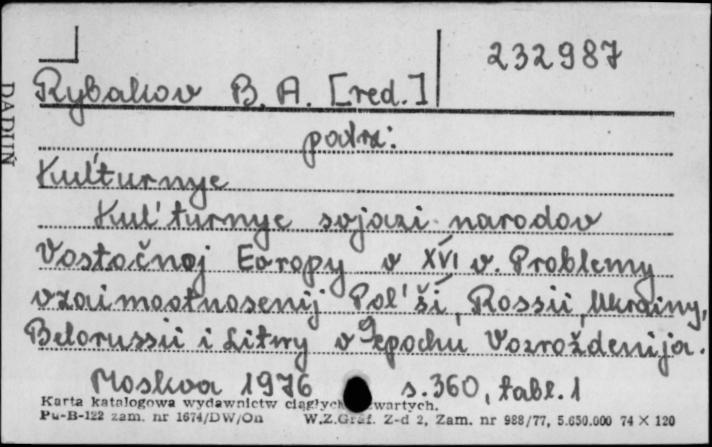 232987
Rybakov B. A. [red.]
DADUŇ
patrz:
Kul'turnye
Kul'turnye svjazi narodov
Vostočnoj Evropy v XVI v. Problemy
vzaimootnosenij Pol'ši, Rossii, Ukrainy,
Belorussii i Litvy v epochu Vozroždenija.
Moskva 1976 s. 360, tabl. 1
Karta katalogowa wydawnictw ciągłych zwartych.
Pu-B-122 zam. nr 1674/DW/On W.Z.Graf. Z-d 2, Zam. nr 988/77, 5.650.000 74 × 120